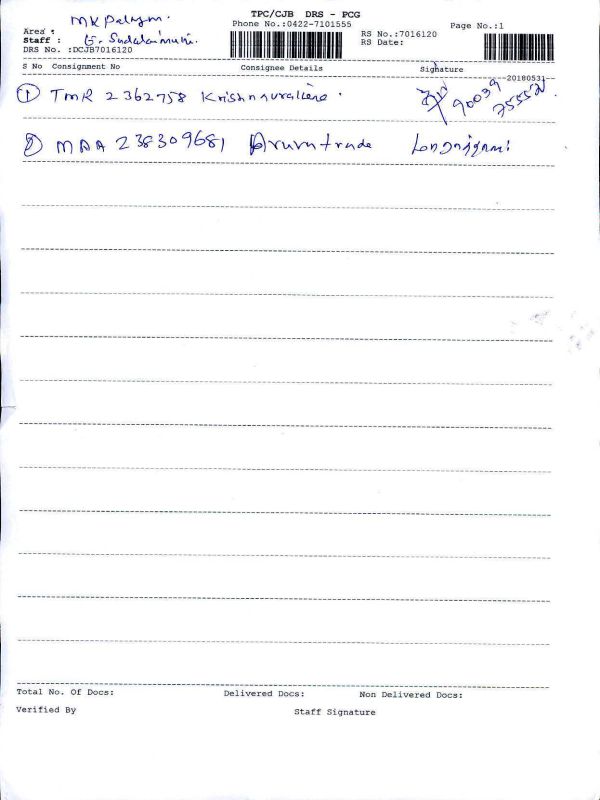 TPC/CJB DRS - PCG
MKPalaym.
Phone No.:0422-7101555
Page No.:1
Area :
RS No.:7016120
Staff : G.
RS Date:
DRS No. :DCJB7016120
S No Consignment No Consignee Details Signature
20180531
① TMR 2362758
90039
75552
② MAA 238309681 trade
Total No. Of Docs: Delivered Docs: Non Delivered Docs:
Verified By Staff Signature